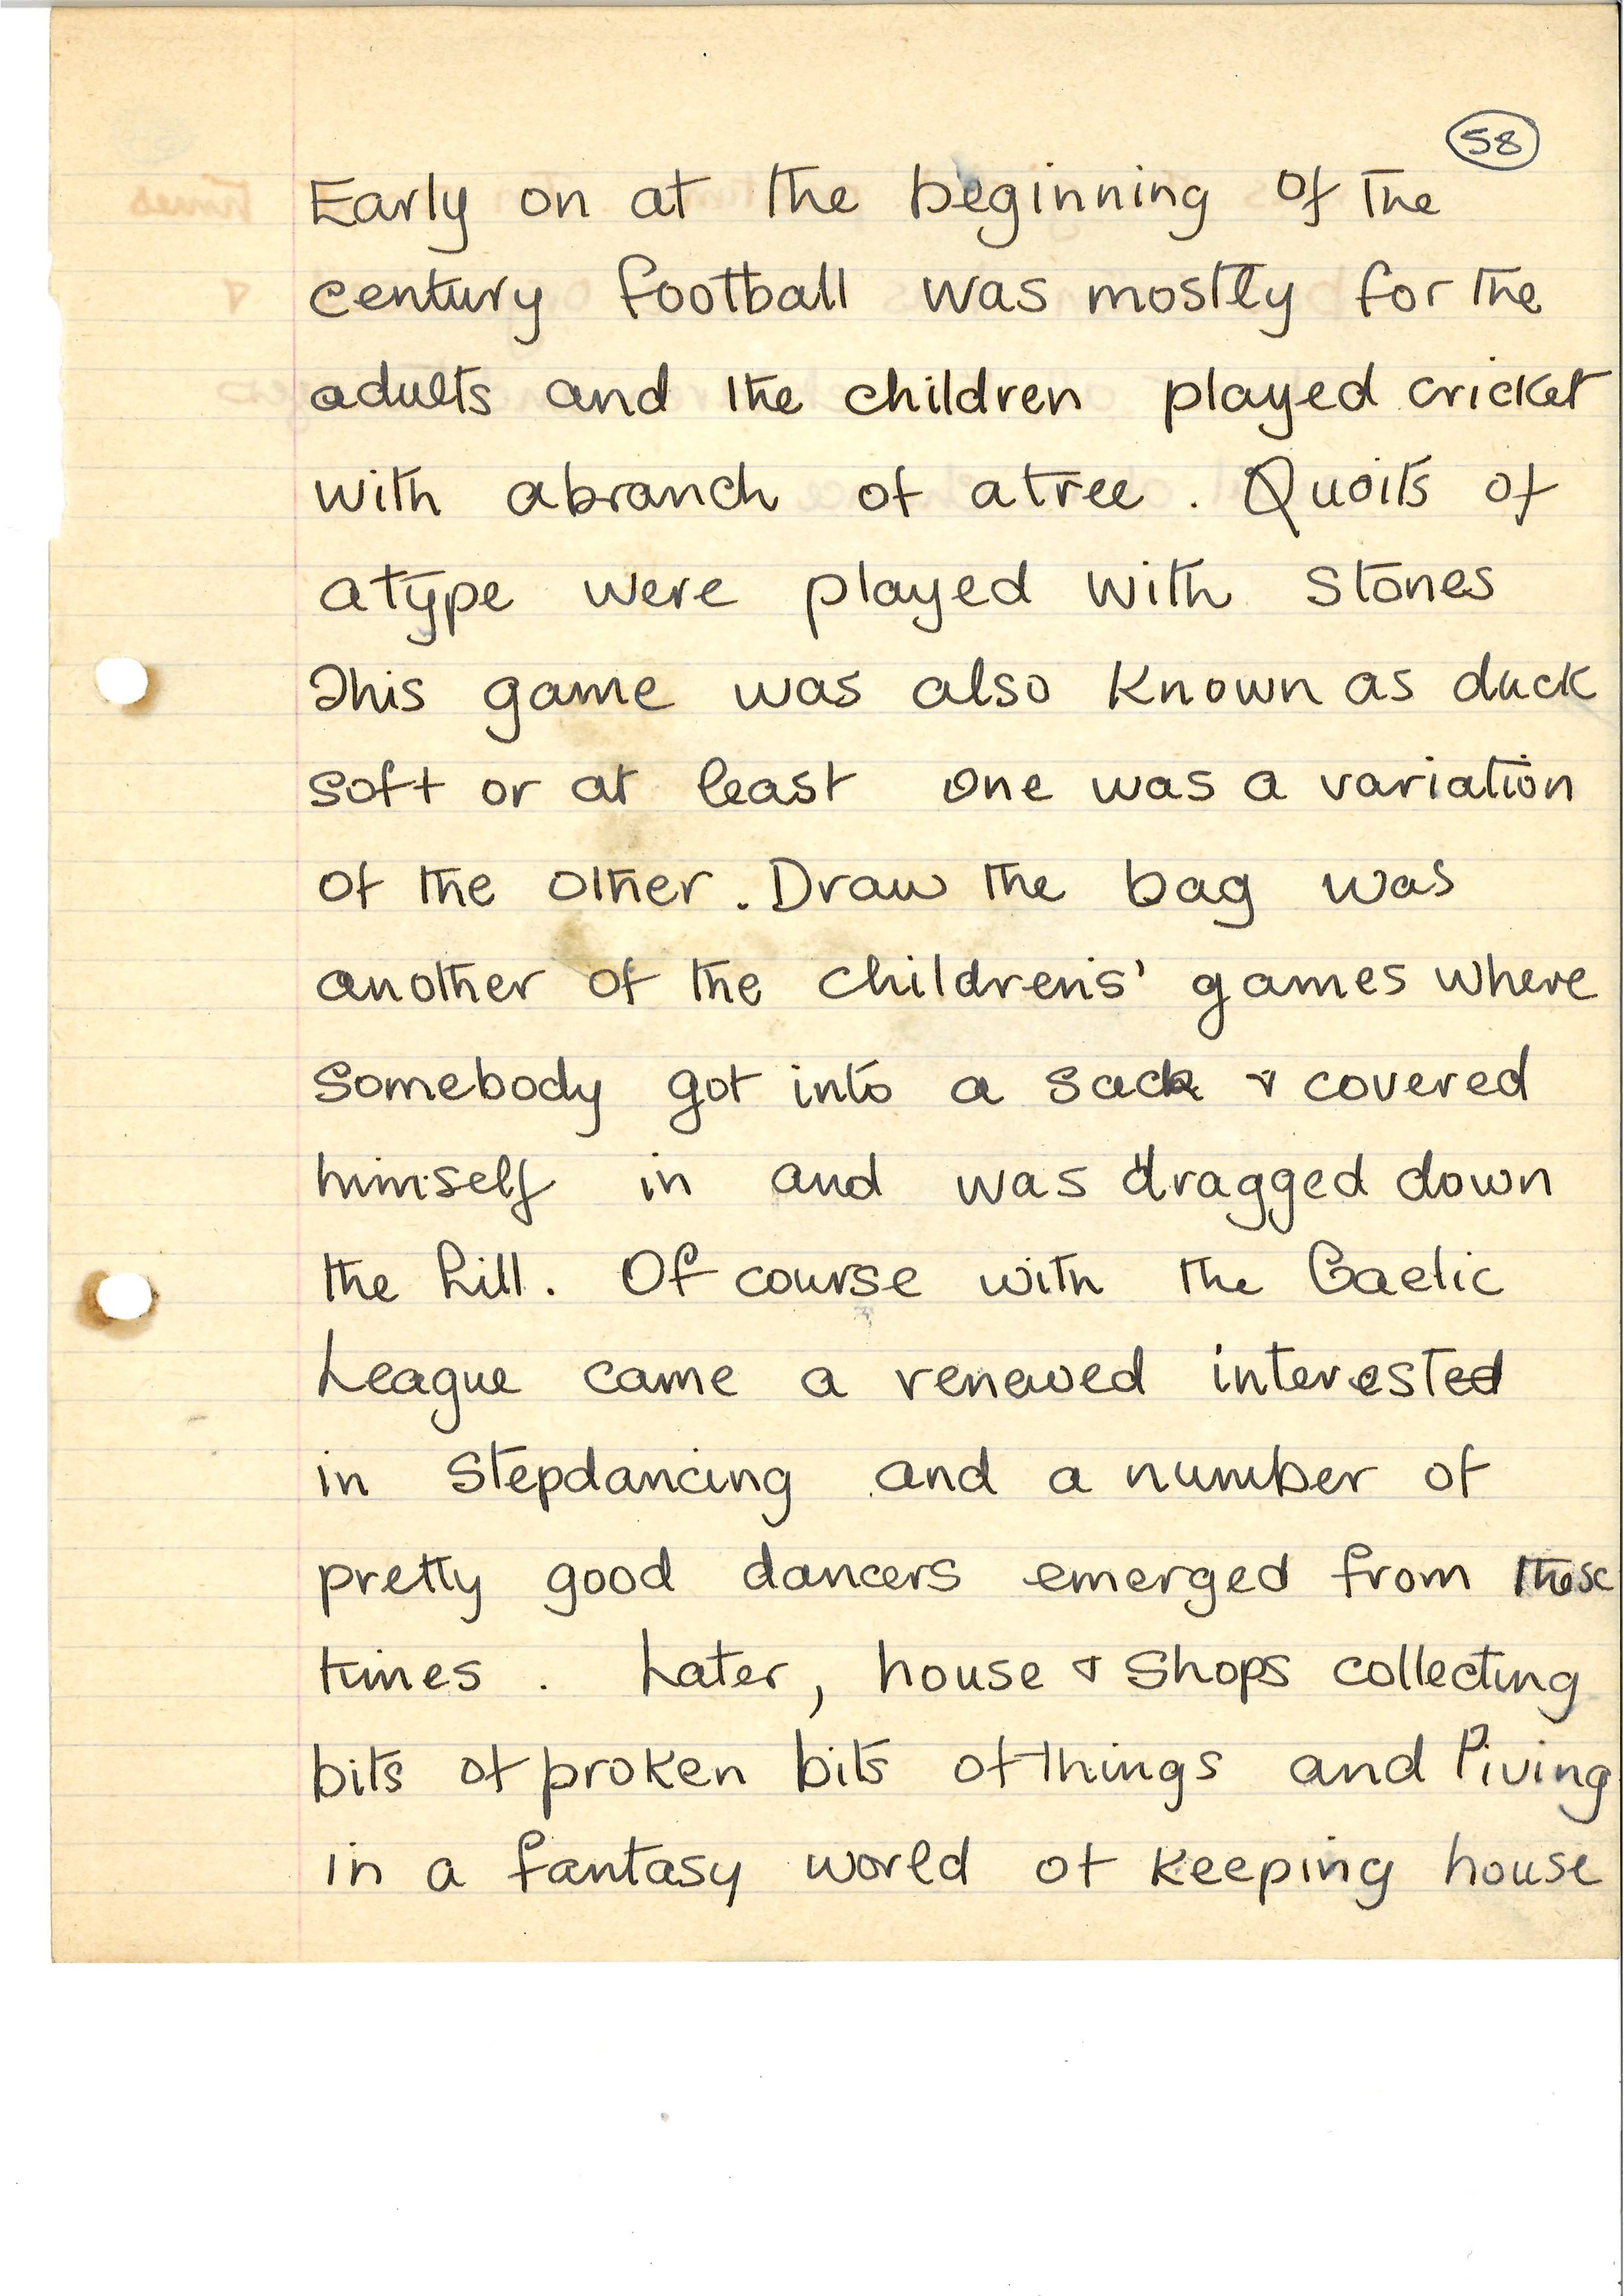 58
Early on at the beginning of the
century football was mostly for the
adults and the children played cricket
with a branch of a tree. Quoits of
a type were played with stones
This game was also known as duck
soft or at least one was a variation
of the other. Draw the bag was
another of the childrens' games where
somebody got into a sack & covered
himself in and was dragged down
the hill. Of course with the Gaelic
League came a renewed interested
in stepdancing and a number of
pretty good dancers emerged from these
times. Later, house & shops collecting
bits of proken bits of things and living
in a fantasy world of keeping house